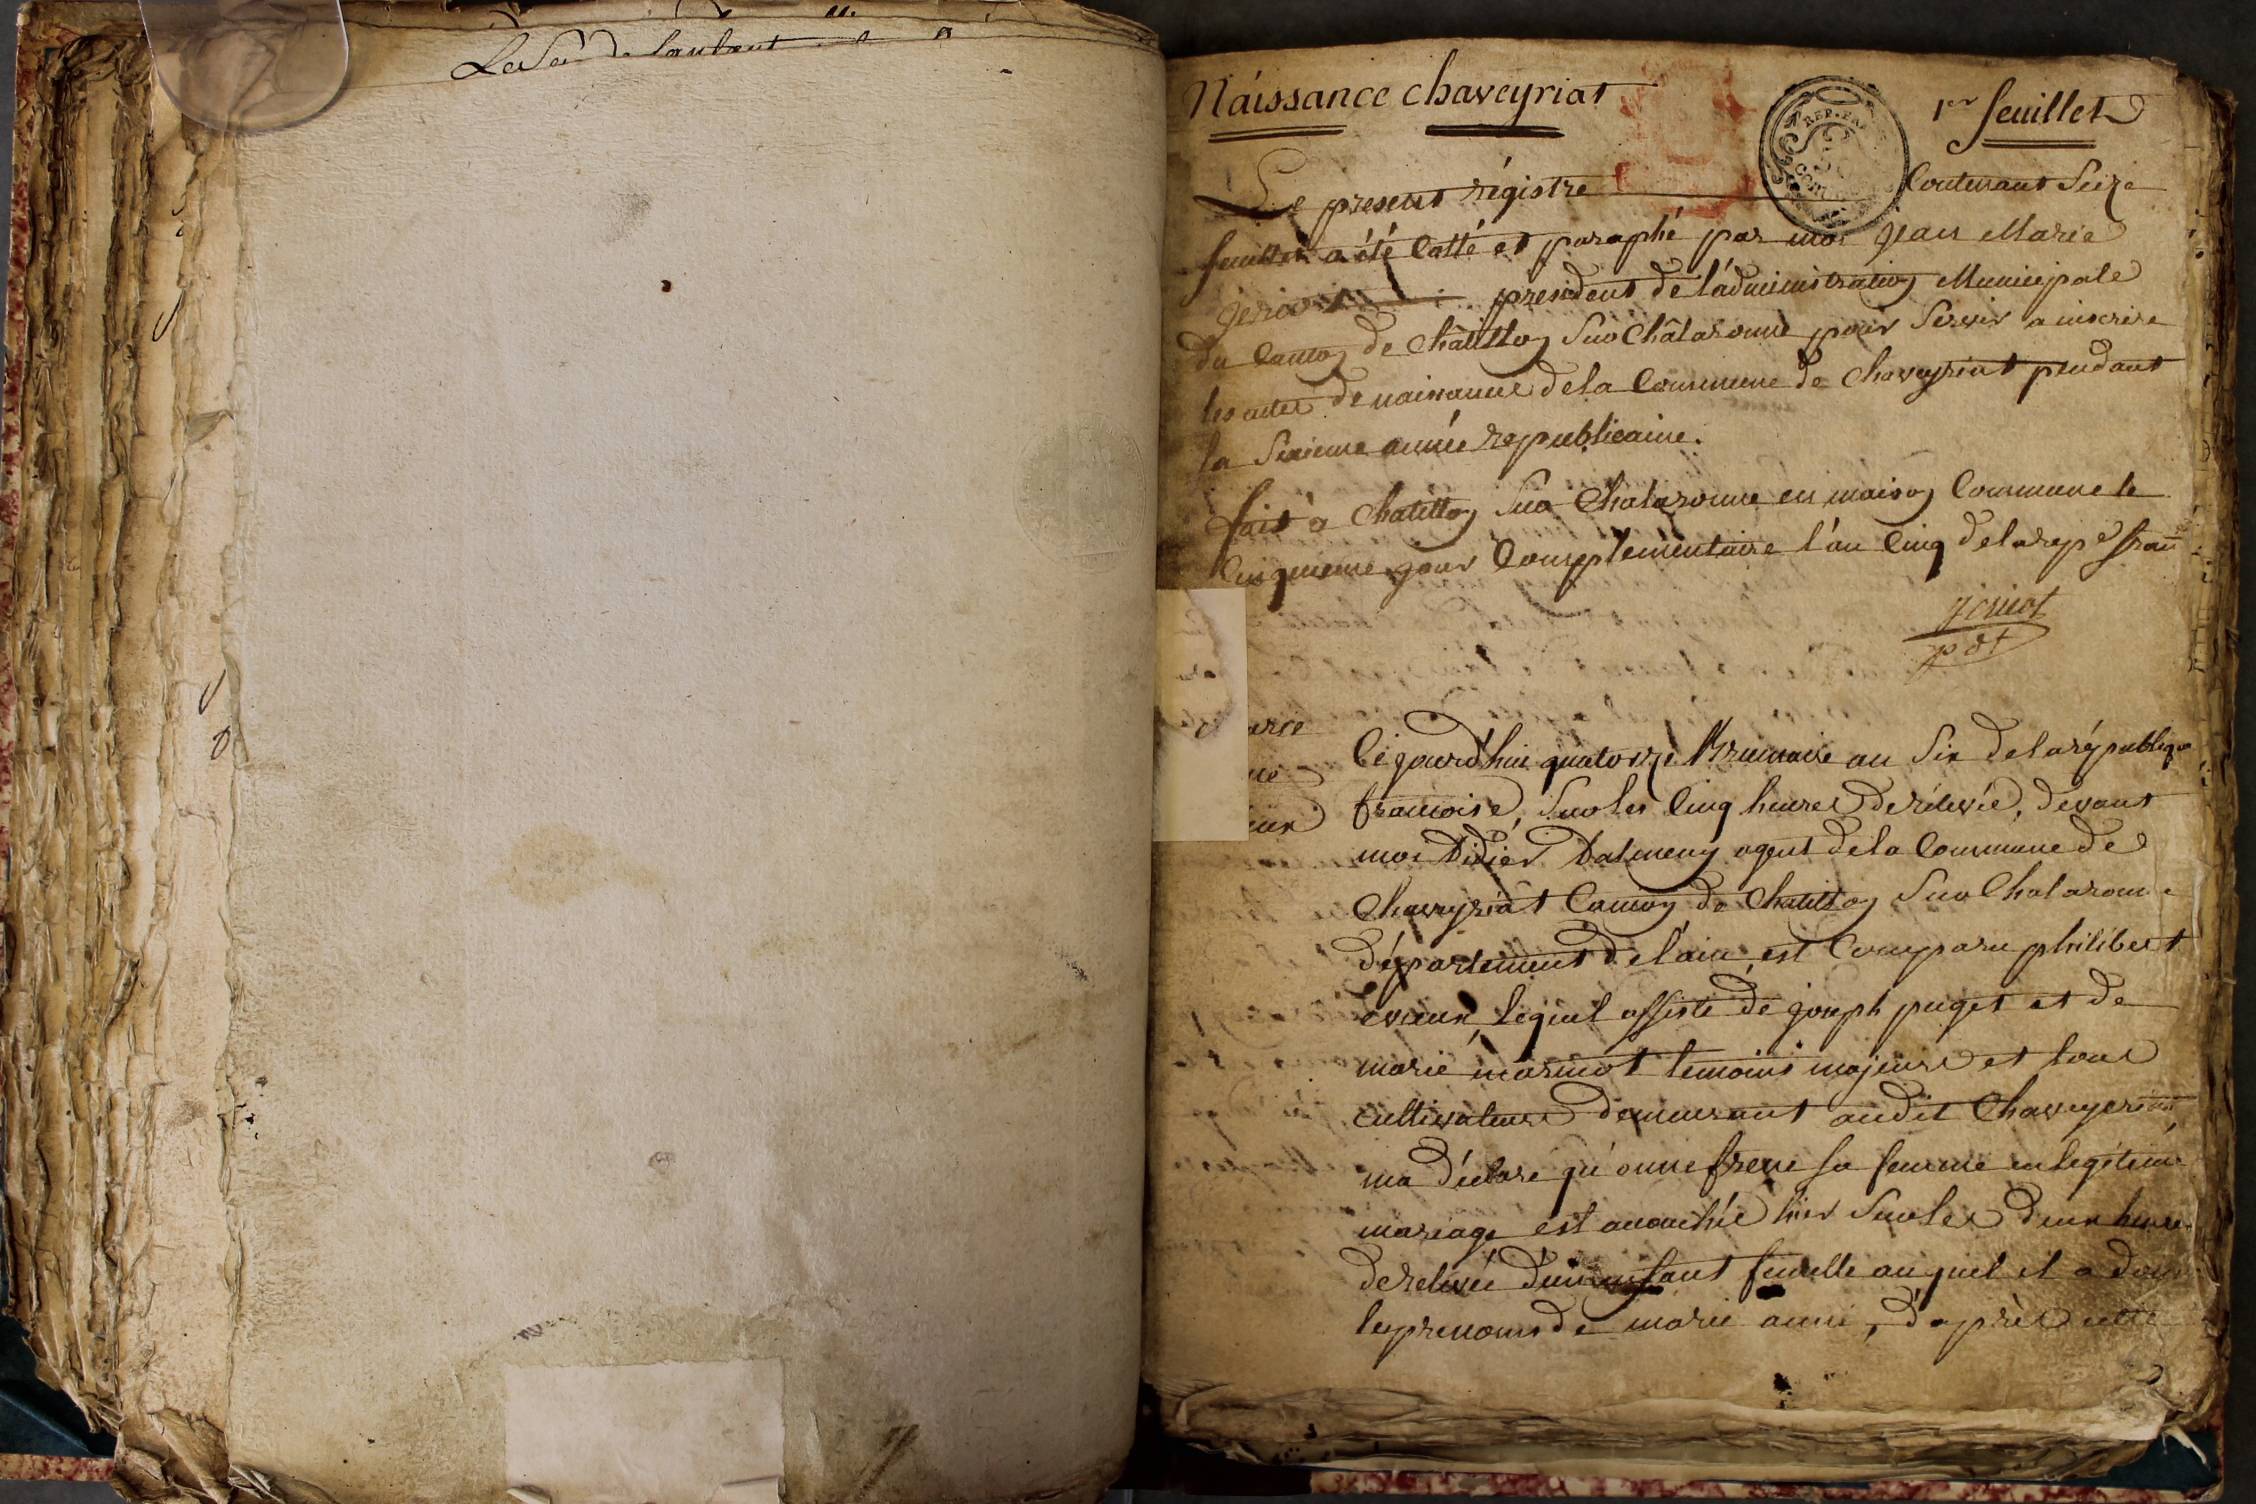 Naissance chaveyriat
1er feuillet
REP. FRA
Le present régistre Contenant Seize
feuillets a été Cotté et paraphé par moi Jean Marie
president de l'administration Municipale
du Canton de Châtillon Sur Châlaronne pour Servir a inscrire
les actes de naissances de la Commune de Chaveyriat pendant
la Sixieme année republicaine.
fait à Chatillon Sur Chalaronne en maison Commune le
Cinquieme jour Complémentaire l'an Cinq de la rep.e fran
pdt
Cejourd'hui quatorze Brumaire an Six de la républiqe
francoise, Sur les Cinq heures de rélevée, devant
moi Didier Dalmeny agent de la Commune de
Chaveyriat Canton de Chatillon Sur Chalaronne
département de l'ain, est Comparu philibert
lequel assisté de joseph puget et de
marie marinot temoins majeurs et tous
cultivateurs demeurant audit Chaveyeriat
ma déclaré qu'anne frere sa femme en legitime
mariage est accouchée hier Sur les deux heures
de relevée d'un enfant femelle auquel il a donné
les prenoms de marie anne, d'après cette